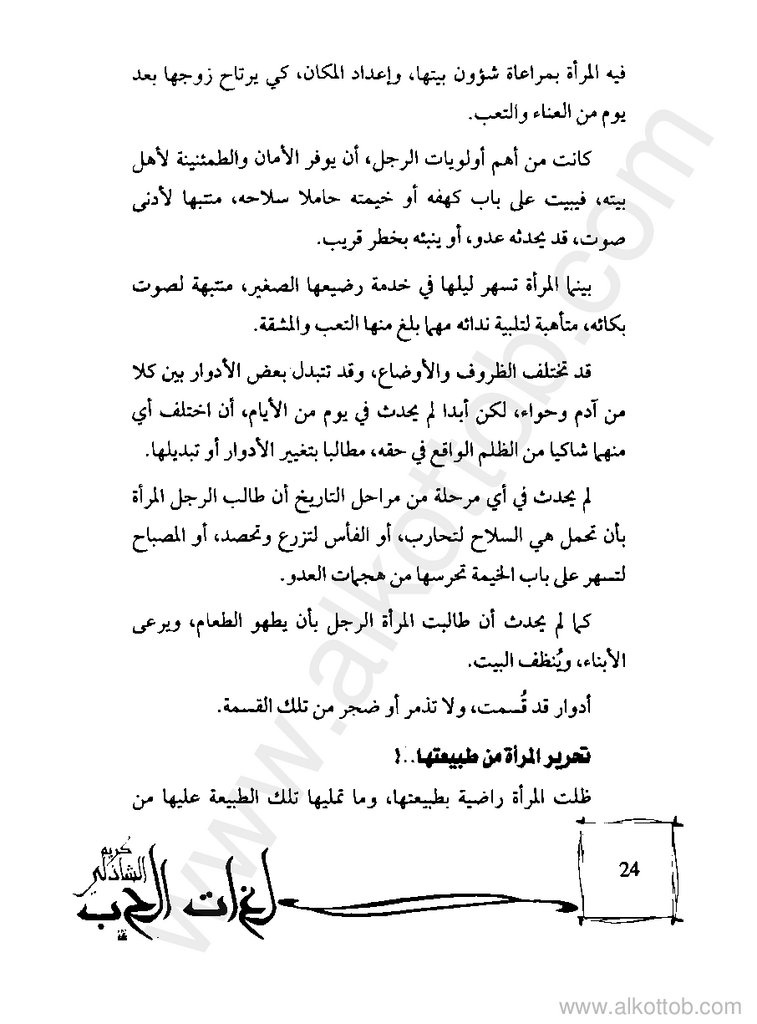 فيه المرأة بمراعاة شؤون بيتها، وإعداد المكان، كي يرتاح زوجها بعد
يوم من العناء والتعب.
كانت من أهم أولويات الرجل، أن يوفر الأمان والطمئنينة لأهل
بيته، فيبيت على باب كهفه أو خيمته حاملا سلاحه، منتبها لأدنى
صوت، قد يحدثه عدو، أو ينبئه بخطر قريب.
بينما المرأة تسهر ليلها في خدمة رضيعها الصغير، منتبهة لصوت
بكائه، متأهبة لتلبية ندائه مهما بلغ منها التعب والمشقة.
قد تختلف الظروف والأوضاع، وقد تتبدل بعض الأدوار بين كلا
من آدم وحواء، لكن أبدا لم يحدث في يوم من الأيام، أن اختلف أي
منهما شاكيا من الظلم الواقع في حقه، مطالبا بتغيير الأدوار أو تبديلها.
لم يحدث في أي مرحلة من مراحل التاريخ أن طالب الرجل المرأة
بأن تحمل هي السلاح لتحارب، أو الفأس لتزرع وتحصد، أو المصباح
لتسهر على باب الخيمة تحرسها من هجمات العدو.
كما لم يحدث أن طالبت المرأة الرجل بأن يطهو الطعام، ويرعى
الأبناء، ويُنظف البيت.
أدوار قد قُسمت، ولا تذمر أو ضجر من تلك القسمة.
تحرير المرأة من طبيعتها..!
ظلت المرأة راضية بطبيعتها، وما تمليها تلك الطبيعة عليها من
24
كريم
الشاذلي
لغات الحب
www.alkottob.com
www.alkottob.com